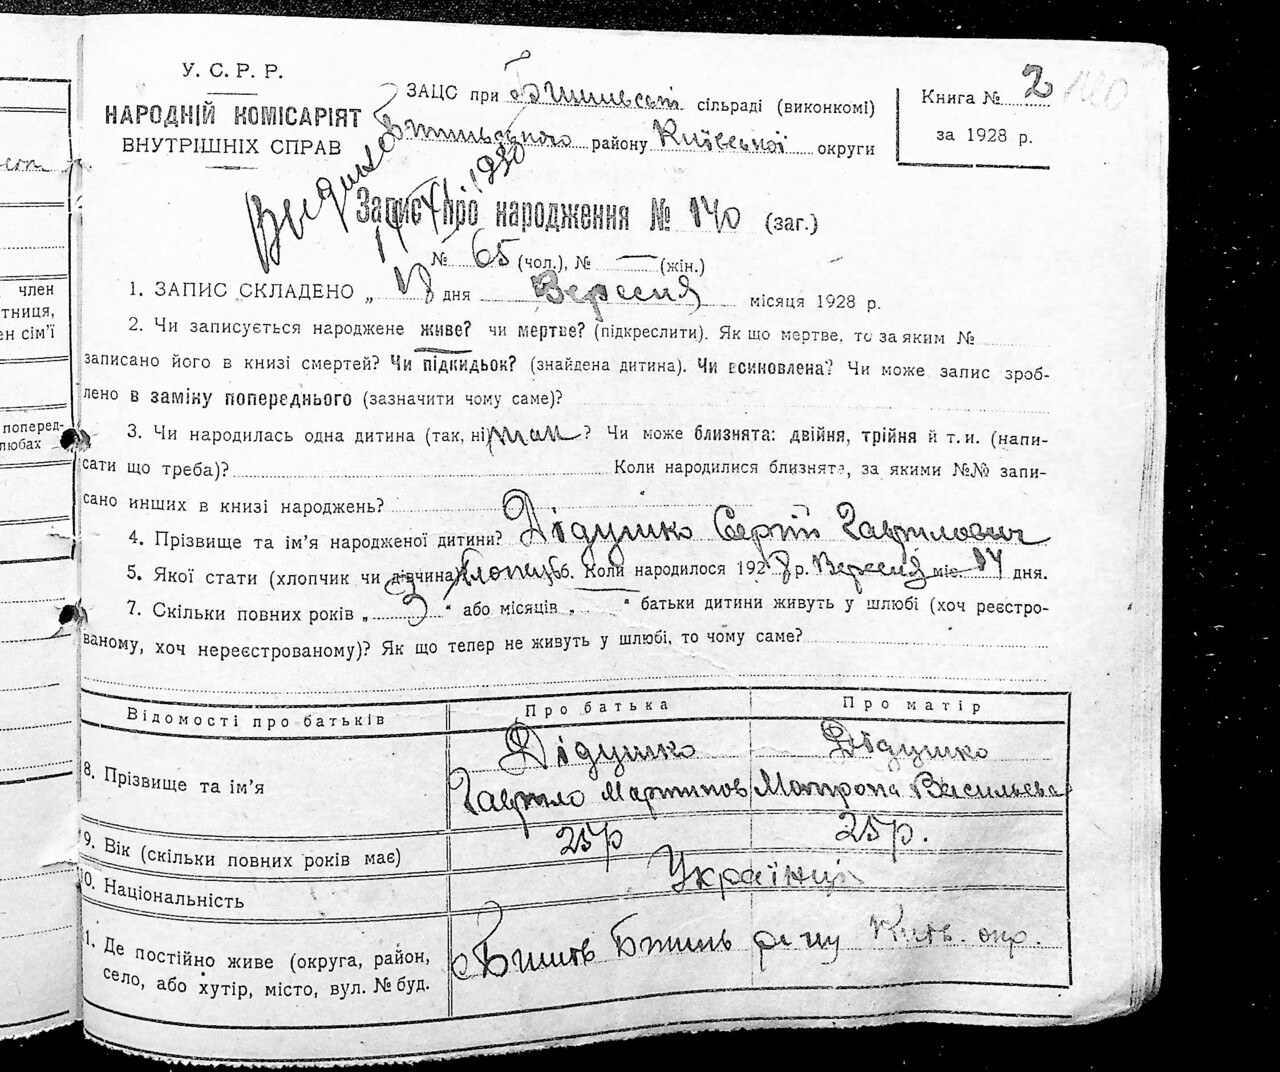 У. С. Р. Р.
НАРОДНІЙ КОМІСАРІЯТ
ВНУТРІШНІХ СПРАВ
ЗАЦС при сільраді (виконкомі)
району Київської округи
Книга № 2
140
за 1928 р.
1930
Запис про народження № 140 (заг.)
№ 65 (чол.), № — (жін.)
1. ЗАПИС СКЛАДЕНО „ 18 дня Вересня місяця 1928 р.
2. Чи записується народжене живе? чи мертве? (підкреслити). Як що мертве, то за яким №
записано його в книзі смертей? Чи підкидьок? (знайдена дитина). Чи всиновлена? Чи може запис зроб-
лено в заміну попереднього (зазначити чому саме)?
3. Чи народилась одна дитина (так, ні) так ? Чи може близнята: двійня, трійня й т. и. (напи-
сати що треба)? Коли народилися близнята, за якими №№ запи-
сано инших в книзі народжень?
4. Прізвище та ім'я народженої дитини? Дідушко Сергій Гаврилович
5. Якої стати (хлопчик чи дівчина) хлопец 6. Коли народилося 1928 р. Вересня міс. 14 дня.
7. Скільки повних років „ 3 “ або місяців „ “ батьки дитини живуть у шлюбі (хоч реєстро-
ваному, хоч нереєстрованому)? Як що тепер не живуть у шлюбі, то чому саме?
Відомості про батьків Про батька Про матір
8. Прізвище та ім'я Дідушко Дідушко
Гаврило Мартинов Мотрона Васильева
9. Вік (скільки повних років має) 25р 25р.
0. Національність Українці
1. Де постійно живе (округа, район,
село, або хутір, місто, вул. № буд. Київ. окр.
член
тниця,
ен сім'ї
поперед-
любах